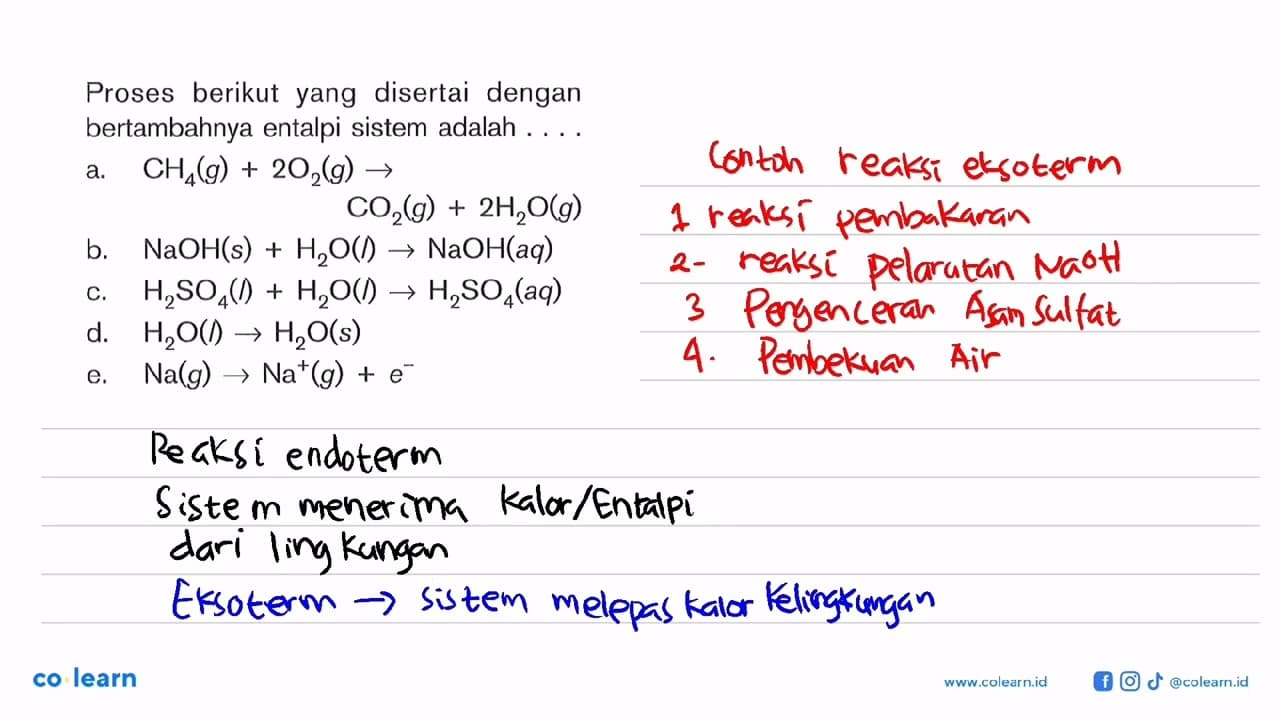 Proses berikut yang disertai dengan
bertambahnya entalpi sistem adalah . . . .
a. CH₄(g) + 2O₂(g) →
CO₂(g) + 2H₂O(g)
b. NaOH(s) + H₂O(l) → NaOH(aq)
c. H₂SO₄(l) + H₂O(l) → H₂SO₄(aq)
d. H₂O(l) → H₂O(s)
e. Na(g) → Na⁺(g) + e⁻
Contoh reaksi eksoterm
1 reaksi pembakaran
2- reaksi pelarutan NaOH
3 Pengenceran Asam Sulfat
4. Pembekuan Air
Reaksi endoterm
Sistem menerima kalor/Entalpi
dari lingkungan
Eksoterm → sistem melepas kalor kelingkungan
co·learn
www.colearn.id
@colearn.id